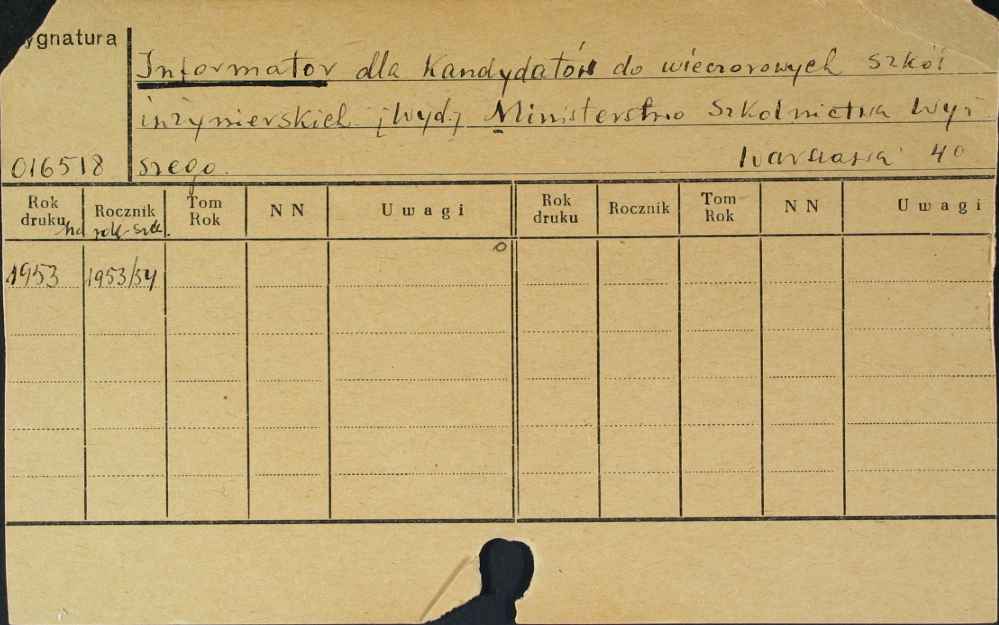 ygnatura
Informator dla Kandydatów do wieczorowych szkół
inżynierskich. [Wyd.] Ministerstwo Szkolnictwa Wyż
016518 szego. Warszawa 40
Rok druku Rocznik Tom Rok NN Uwagi Rok druku Rocznik Tom Rok NN Uwagi
na rok szk.
1953 1953/54